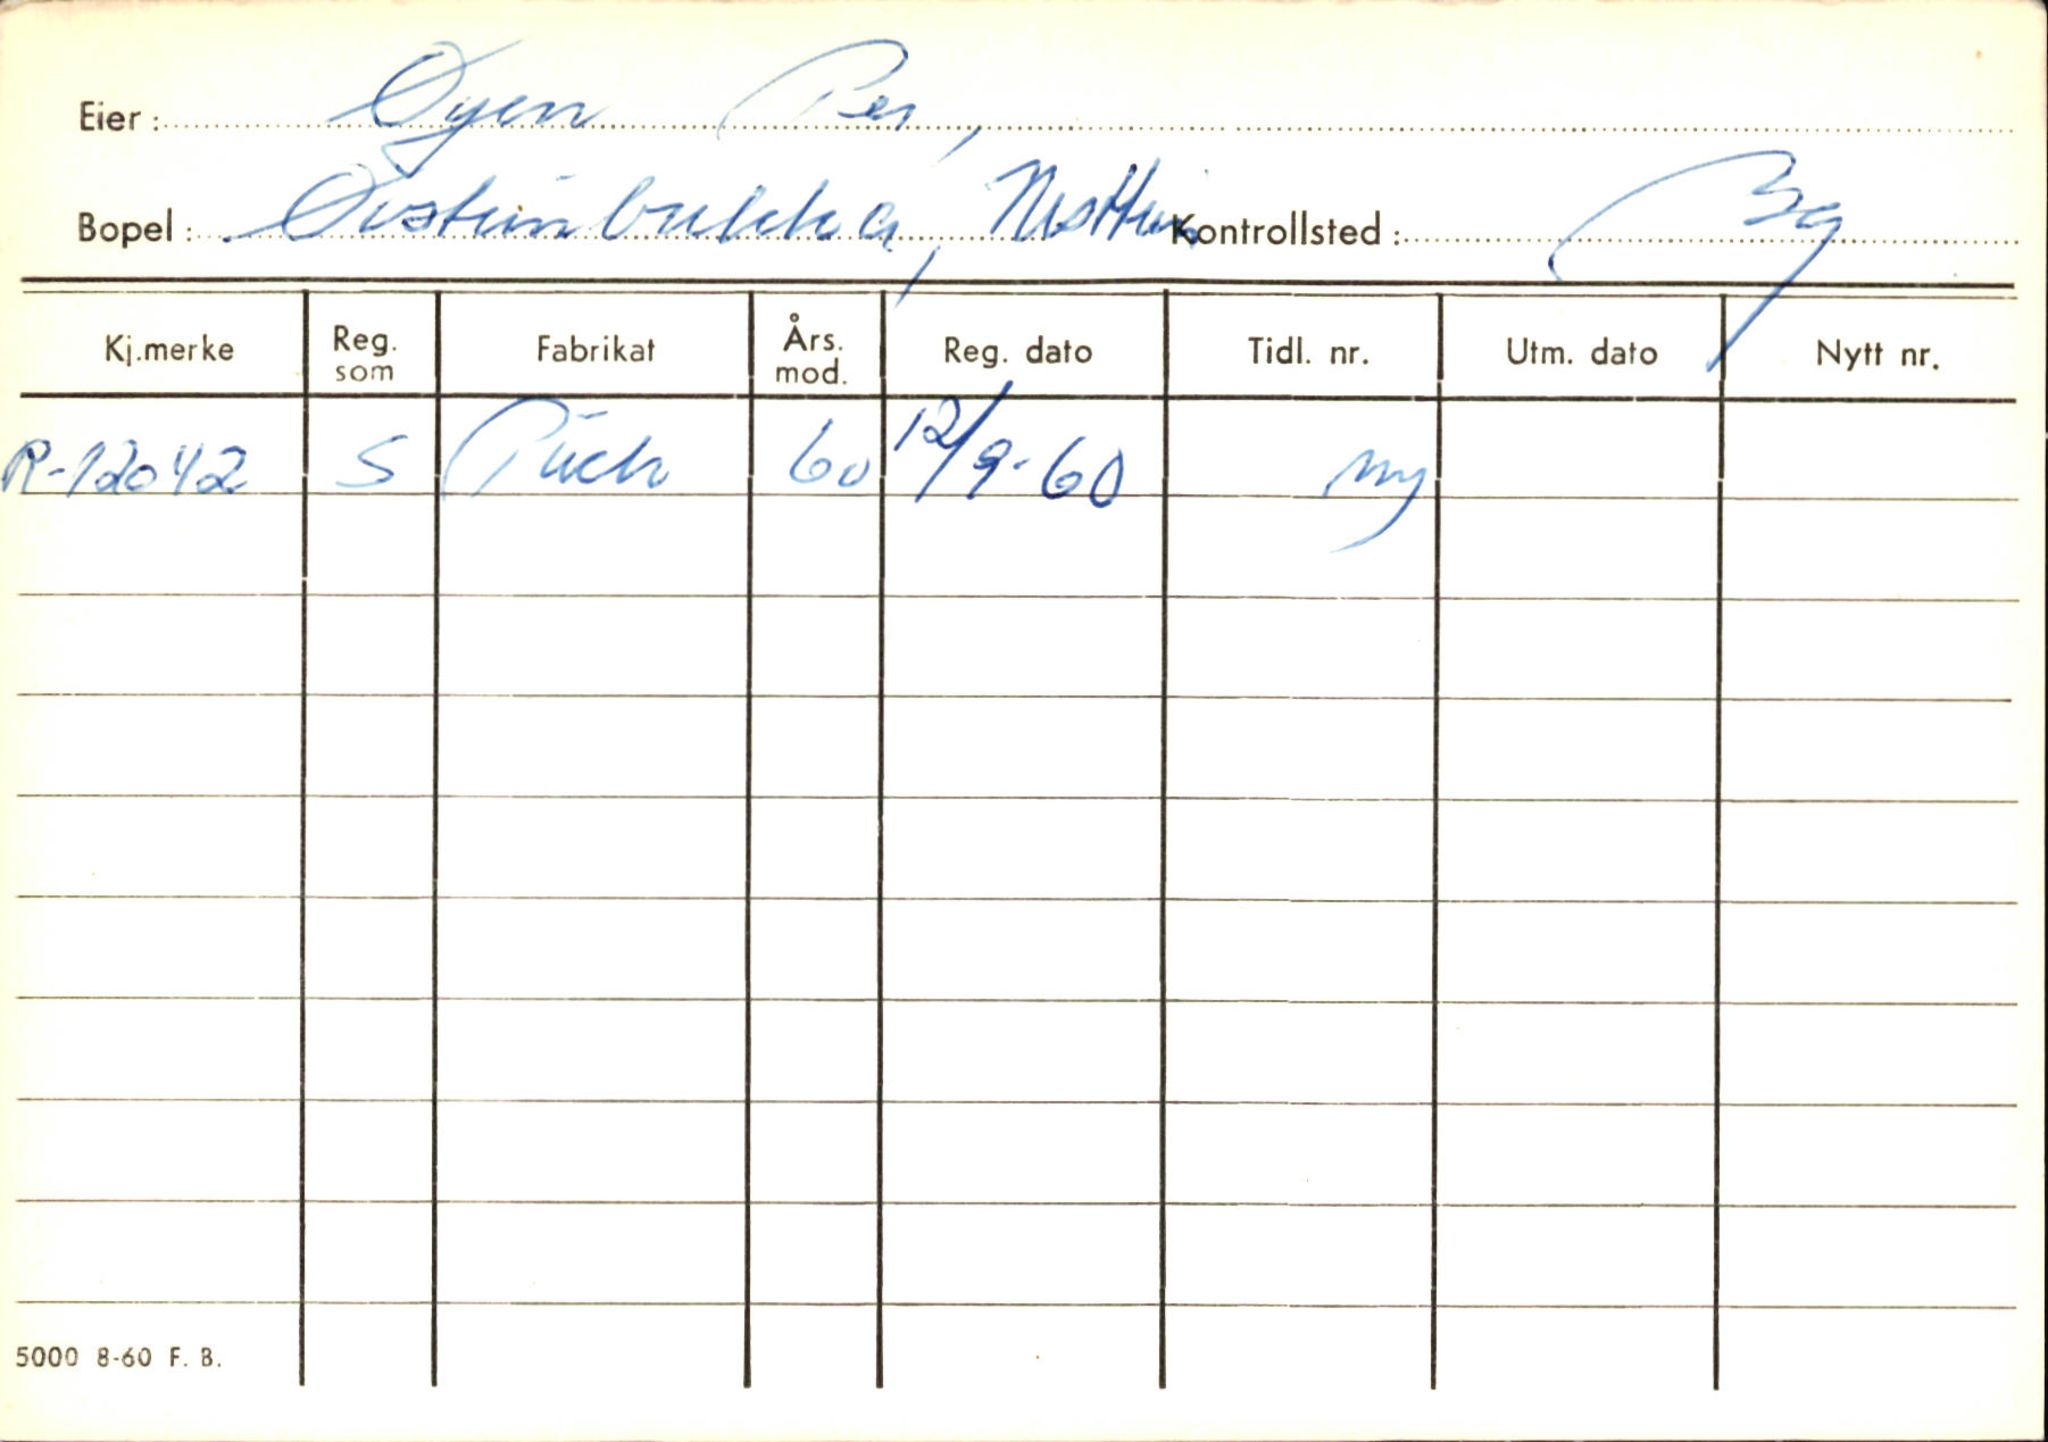 Eier: Øyen Per,
Bopel: Øvsteinbakka, Kontrollsted: Bg
Kj.merke Reg. som Fabrikat Års. mod. Reg. dato Tidl. nr. Utm. dato Nytt nr.
R-12042 S Puch 60 12/9-60 ny
5000 8-60 F. B.